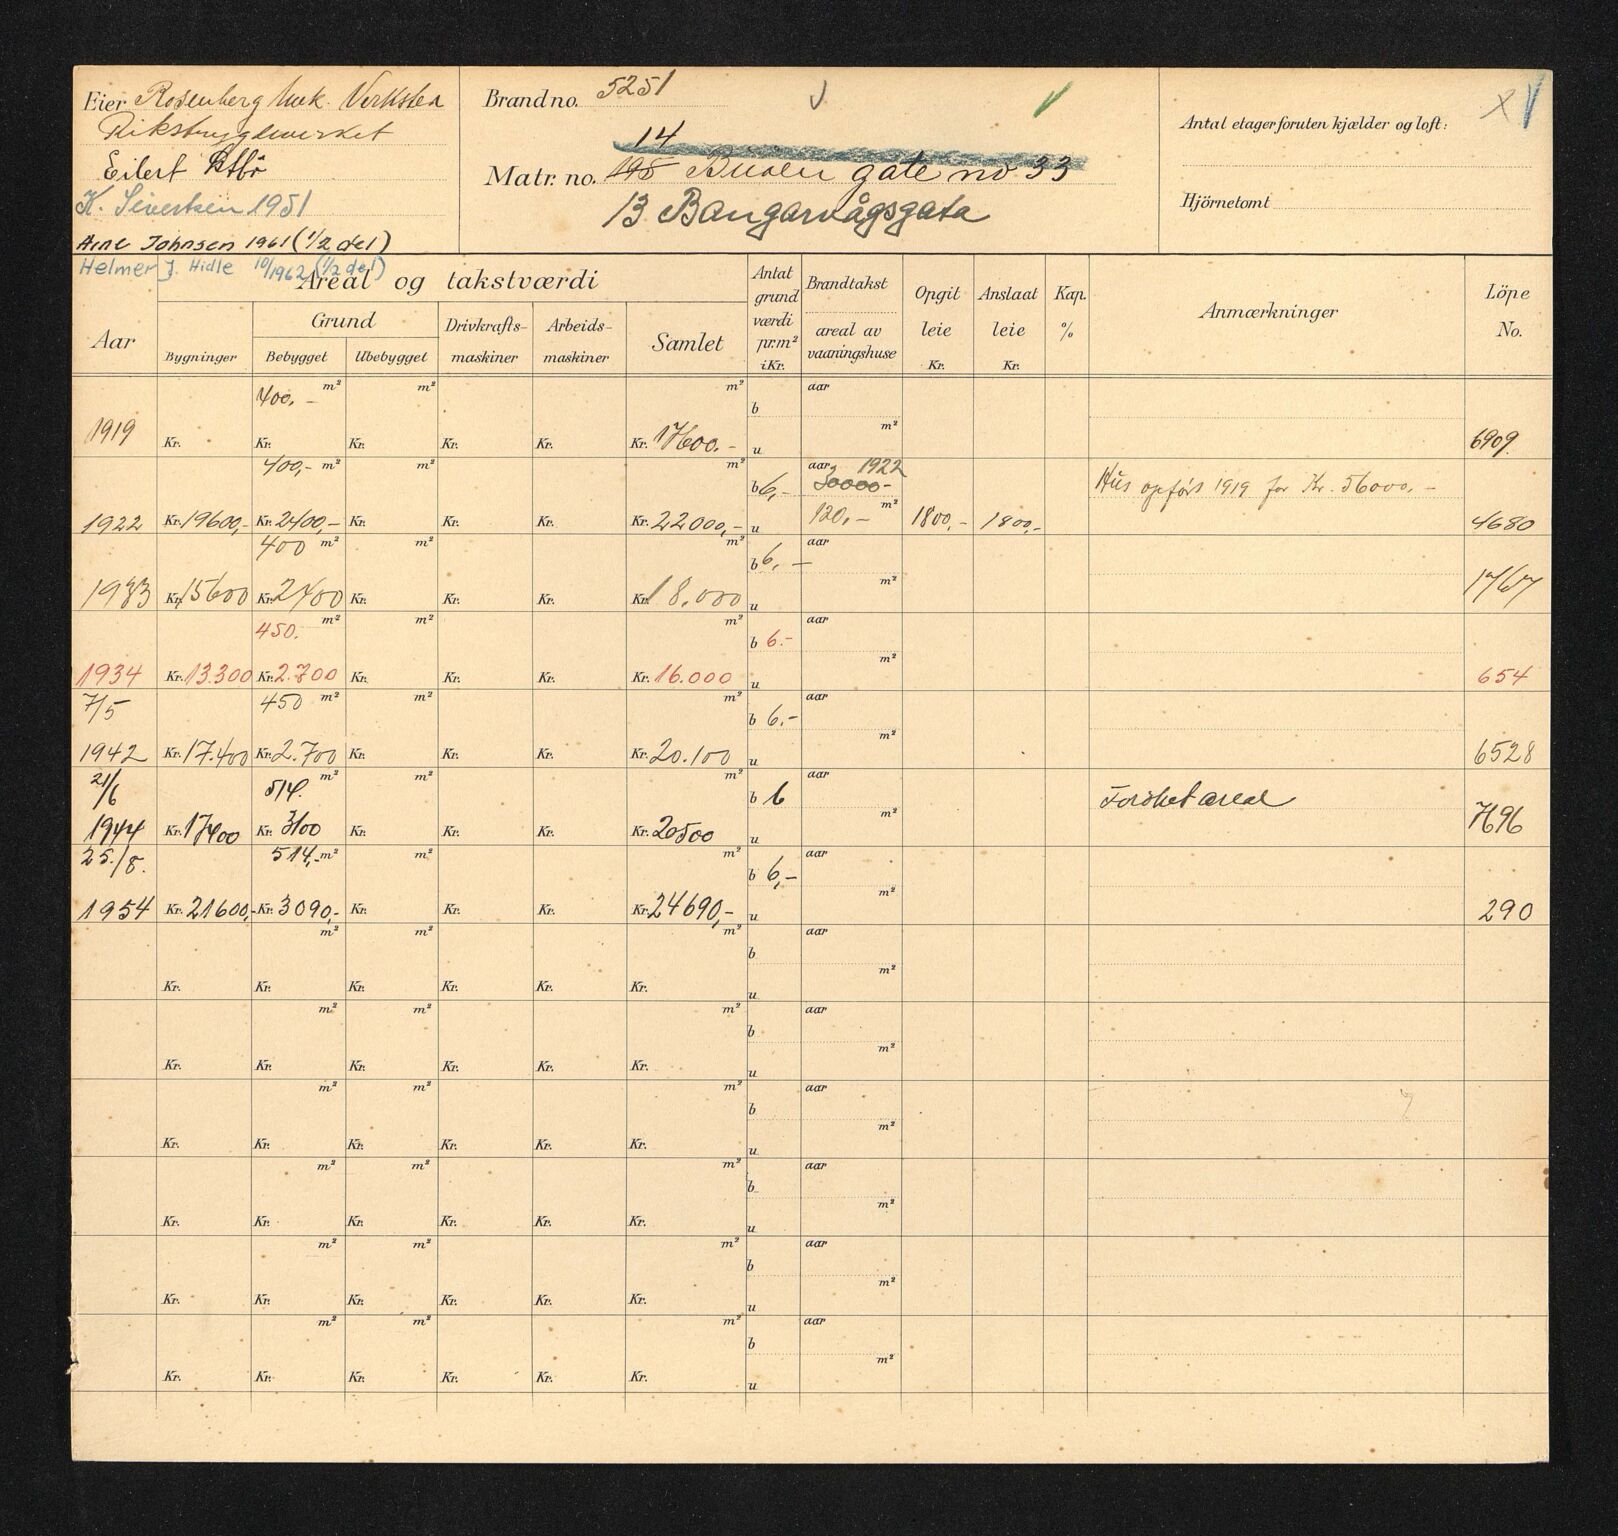 Eier Rosenberg Mek. Verksted
Rikstrygdeverket
Eilert
K. Sivertsen 1951
Arne Johnsen 1961 (1/2 del)
Helmer J. Hidle 10/1962 (1/2 del)
Brand no. 5251 V V
14
Matr. no. 195 Buøen gate no 33
13 Bangarvågsgata
X V
Antal etager foruten kjælder og loft:
Hjörnetomt
Aar
Areal og takstværdi
Bygninger
Grund
Bebygget Ubebygget
Drivkrafts-maskiner
Arbeids-maskiner
Samlet
Antat grund værdi pr. m² i Kr.
Brandtakst
areal av vaaningshuse
Opgit leie Kr.
Anslaat leie Kr.
Kap. %
Anmærkninger
Löpe No.
400.- m² m² m² b aar
1919 Kr. Kr. Kr. Kr. Kr. Kr. 17600.- u m² 6909
400,- m² m² m² b 6,- aar 1922 30000-
1922 Kr. 19600,- Kr. 2400,- Kr. Kr. Kr. Kr. 22000,- u m² 120,- 1800,- 1800,- Hus opført 1919 for Kr. 56000,- 4680
400 m² m² m² b 6,- aar
1933 Kr. 15600 Kr. 2400 Kr. Kr. Kr. Kr. 18.000 u m² 1767
450. m² m² m² b 6.- aar
1934 Kr. 13.300 Kr. 2.700 Kr. Kr. Kr. Kr. 16.000 u m² 654
7/5 450 m² m² m² b 6.- aar
1942 Kr. 17.400 Kr. 2.700 Kr. Kr. Kr. Kr. 20.100 u m² 6528
21/6 514. m² m² m² b 6 aar
1944 Kr. 17400 Kr. 3100 Kr. Kr. Kr. Kr. 20500 u m² Forøket areal 7696
25./8. 514,- m² m² m² b 6,- aar
1954 Kr. 21600,- Kr. 3090,- Kr. Kr. Kr. Kr. 24690,- u m² 290
m² m² m² b aar
Kr. Kr. Kr. Kr. Kr. Kr. u m²
m² m² m² b aar
Kr. Kr. Kr. Kr. Kr. Kr. u m²
m² m² m² b aar
Kr. Kr. Kr. Kr. Kr. Kr. u m²
m² m² m² b aar
Kr. Kr. Kr. Kr. Kr. Kr. u m²
m² m² m² b aar
Kr. Kr. Kr. Kr. Kr. Kr. u m²
m² m² m² b aar
Kr. Kr. Kr. Kr. Kr. Kr. u m²